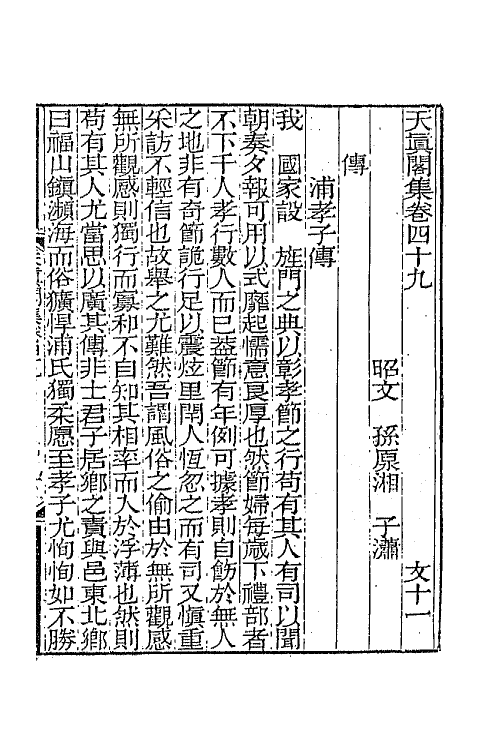 天真閣集卷四十九　文十一
昭文　孫原湘　子瀟
傳
浦孝子傳
我　國家設　旌門之典以彰孝節之行苟有其人有司以聞
朝奏夕報可用以式靡起懦意良厚也然節婦每歲下禮部者
不下千人孝行數人而已葢節有年例可據孝則自飭於無人
之地非有奇節詭行足以震炫里閈人恆忽之而有司又愼重
采訪不輕信也故舉之尤難然吾謂風俗之偷由於無所觀感
無所觀感則獨行而寡和不自知其相率而入於浮薄也然則
苟有其人尤當思以廣其傳非士君子居鄉之責與邑東北鄉
曰福山鎭瀕海而俗獷悍浦氏獨柔愿至孝子尤恂恂如不勝